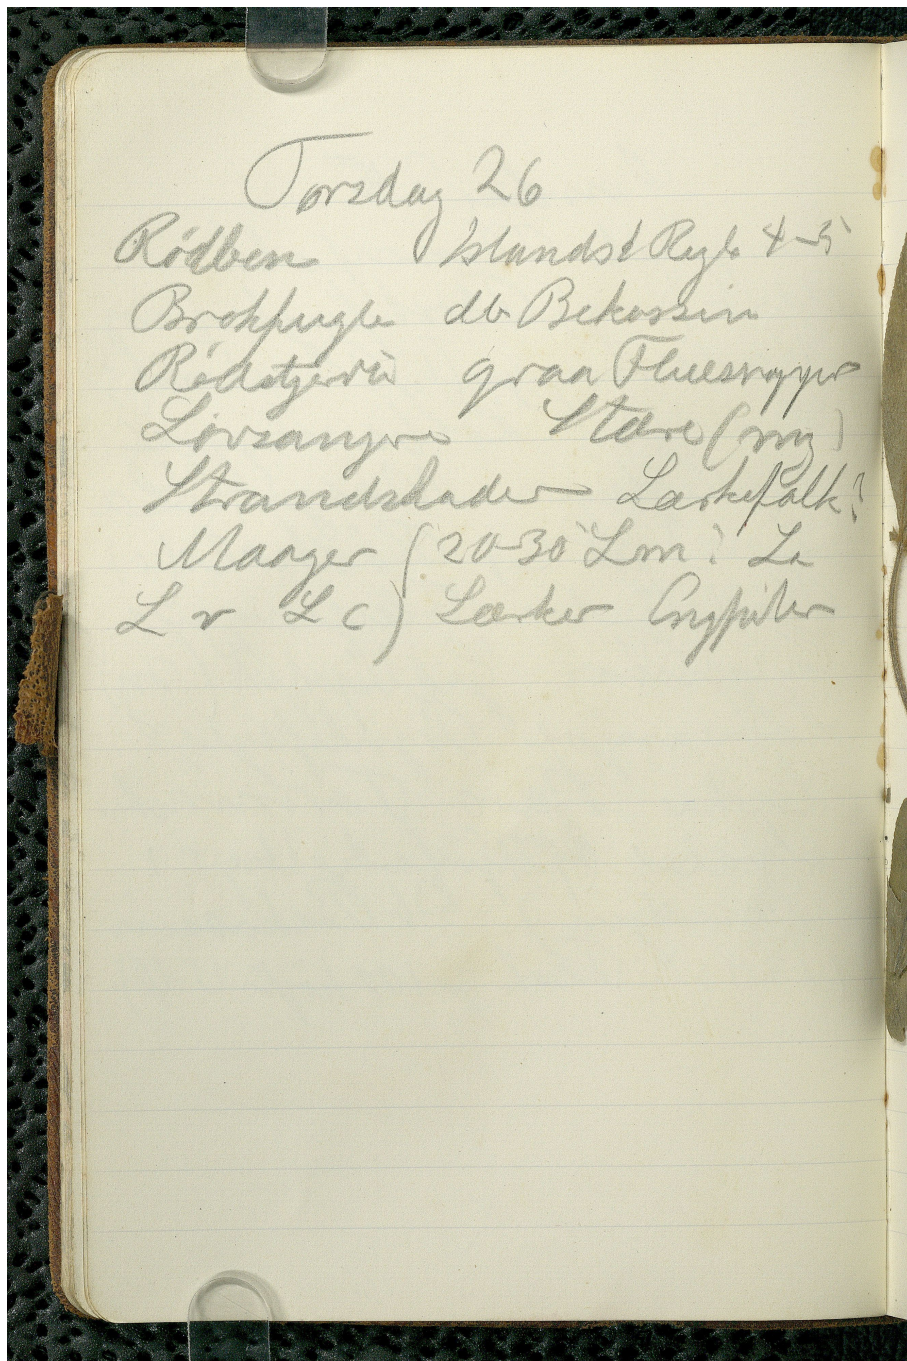 Torsdag 26
Rødben Islandsk Ryle 4-5
Brokfugle dlb Bekassin
Rødstjerte graa Fluesnapper
Løvsangere Stære (mg)
Strandskader Lærkefalk?
Maager (20-30 Lm? La
L r L c) Lærker Engpiber